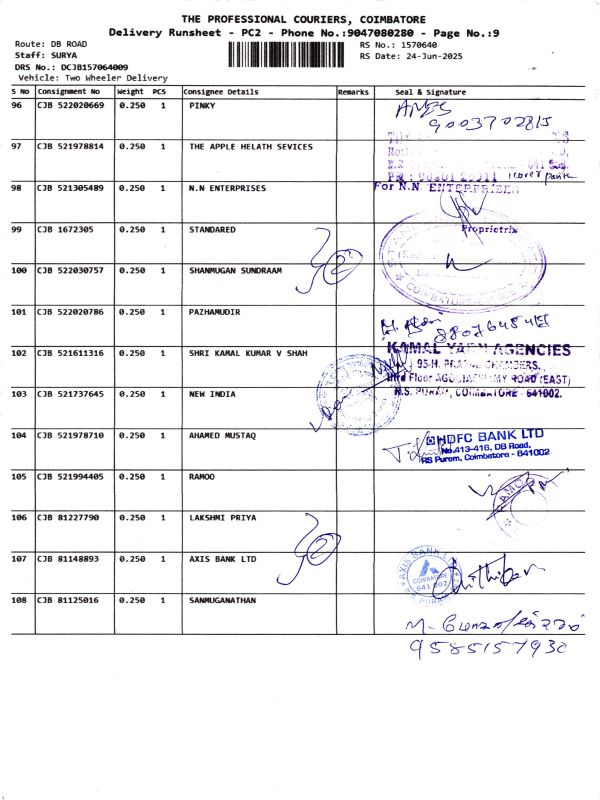 THE PROFESSIONAL COURIERS, COIMBATORE
Delivery Runsheet - PC2 - Phone No.:9047080280 - Page No.:9
Route: DB ROAD RS No.: 1570640
Staff: SURYA RS Date: 24-Jun-2025
DRS No.: DCJB157064009
Vehicle: Two Wheeler Delivery
S No Consignment No Weight PCS Consignee Details Remarks Seal & Signature
96 CJB 522020669 0.250 1 PINKY
9003702815
97 CJB 521978814 0.250 1 THE APPLE HELATH SEVICES
98 CJB 521305489 0.250 1 N.N ENTERPRISES For N.N. ENTERPRISES
Proprietrix
99 CJB 1672305 0.250 1 STANDARED
100 CJB 522030757 0.250 1 SHANMUGAN SUNDRAAM
101 CJB 522020786 0.250 1 PAZHAMUDIR
102 CJB 521611316 0.250 1 SHRI KAMAL KUMAR V SHAH KAMAL YARN AGENCIES
95-H, CHAMBERS,
(EAST)
R.S. PURAM, COIMBATORE - 641002.
103 CJB 521737645 0.250 1 NEW INDIA
104 CJB 521978710 0.250 1 AHAMED MUSTAQ HDFC BANK LTD
No.413-416, DB Road,
RS Puram, Coimbatore - 641002
105 CJB 521994405 0.250 1 RAMOO
106 CJB 81227790 0.250 1 LAKSHMI PRIYA
107 CJB 81148893 0.250 1 AXIS BANK LTD AXIS BANK LTD
COIMBATORE
641 002
108 CJB 81125016 0.250 1 SANMUGANATHAN
9585157930